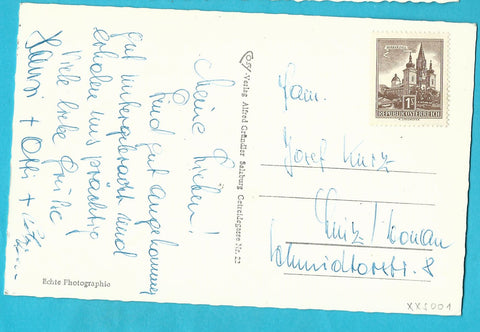 Meine Lieben!
Sind gut angekommen,
gut untergebracht und
erholen uns prächtig
Viele liebe Grüße
Hansi + Otti +
Echte Photographie
Verlag Alfred Gründler Salzburg Getreidegasse Nr. 22
MARIAZELL
1S
REPUBLIK ÖSTERREICH
Fam.
Josef Kurz
Linz / Donau
Schmidtorstr. 8
XX5001